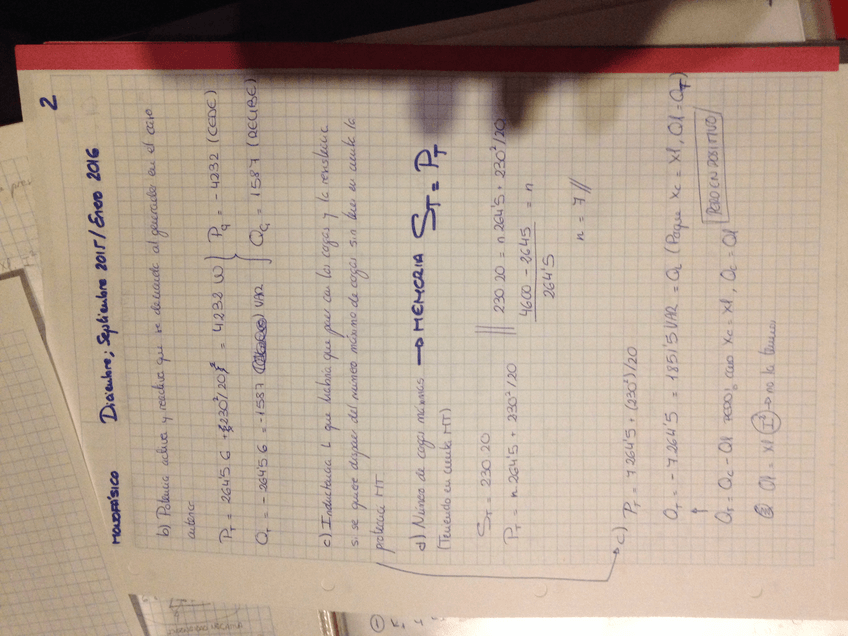 2
MONOFÁSICO Diciembre; Septiembre 2015/Enero 2016
b) Potencia activa y reactiva que se demanda al generador en el caso
anterior
P_T = 264'5·6 + (230²/20) = 4232 W } P_G = -4232 (CEDE)
Q_T = -264'5·6 = -1587 VAR } Q_G = 1587 (RECIBE)
c) Inductancia L que habría que poner en las cargas y la resistencia
si se quiere disponer del número máximo de cargas sin tener en cuenta la
potencia MT
d) Número de cargas máximas → MEMORIA S_T = P_T
(Teniendo en cuenta MT)
S_T = 230·20 || 230·20 = n·264'5 + 230²/20
P_T = n·264'5 + 230²/20
4600 - 2645 / 264'5 = n
n = 7 //
c) P_T = 7·264'5 + (230²)/20
Q_T = -7·264'5 = 1851'5 VAR = Q_L (Porque Xc = Xl, Ql = Q_T)
↑
Q_T = Qc - Ql caso Xc = Xl, Qc = Ql PERO EN POSITIVO
Ql = Xl I² → no la tenemos